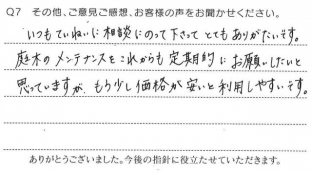 Q7 その他、ご意見ご感想、お客様の声をお聞かせください。
いつもていねいに相談にのって下さって とてもありがたいです。
庭木のメンテナンスをこれからも定期的にお願いしたいと
思っていますが、もう少し価格が安いと利用しやすいです。
ありがとうございました。今後の指針に役立たせていただきます。